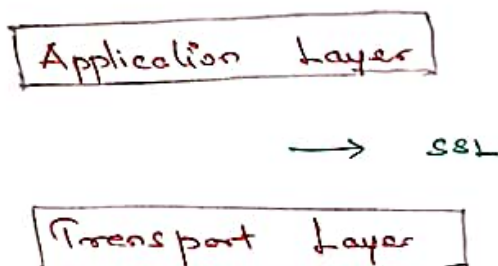 Application Layer
→ SSL
Transport Layer